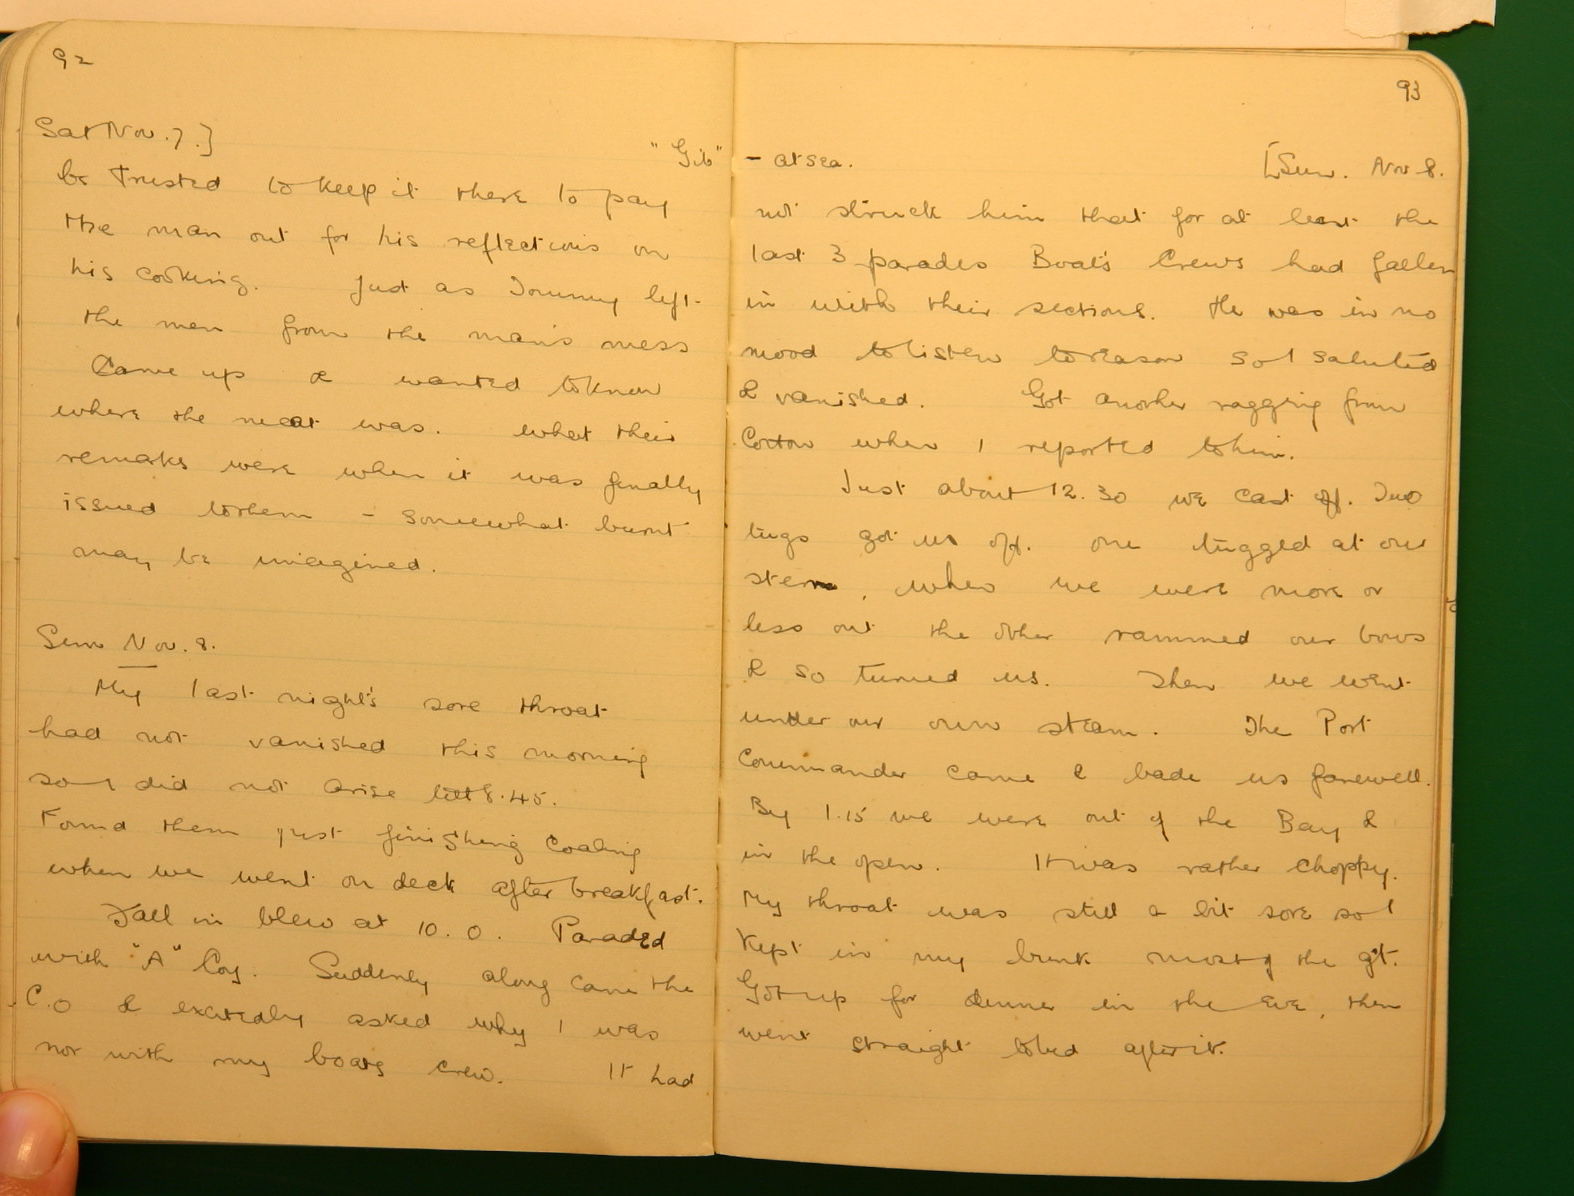 92
Sat Nov. 7.]
"Gib"
be trusted to keep it there to pay
the man out for his reflections on
his cooking. Just as Tommy left
the men from the man's mess
Came up & wanted to know
where the meat was. What their
remarks were when it was finally
issued to them - somewhat burnt
may be imagined.
Sun Nov. 8.
My last night's sore throat
had not vanished this morning
so I did not arise till 8.45.
Found them just finishing Coaling
when we went on deck after breakfast.
Fall in blew at 10.0. Paraded
with "A" Coy. Suddenly along came the
C.O & excitedly asked why I was
not with my boats crew. It had
93
- at sea.
[Sun. Nov 8.
not struck him that for at least the
last 3 parades Boat's Crews had fallen
in with their sections. He was in no
mood to listen to reason so I saluted
& vanished. Got another ragging from
when I reported to him.
Just about 12.30 we cast off. Two
tugs got us off. One tugged at our
stern, when we were more or
less out the other rammed our bows
& so turned us. Then we went
under our own steam. The Port
Commander came & bade us farewell.
By 1.15 we were out of the Bay &
in the open. It was rather choppy.
My throat was still a bit sore so I
kept in my bunk most of the
Got up for dinner in the eve, then
went straight to bed after it.